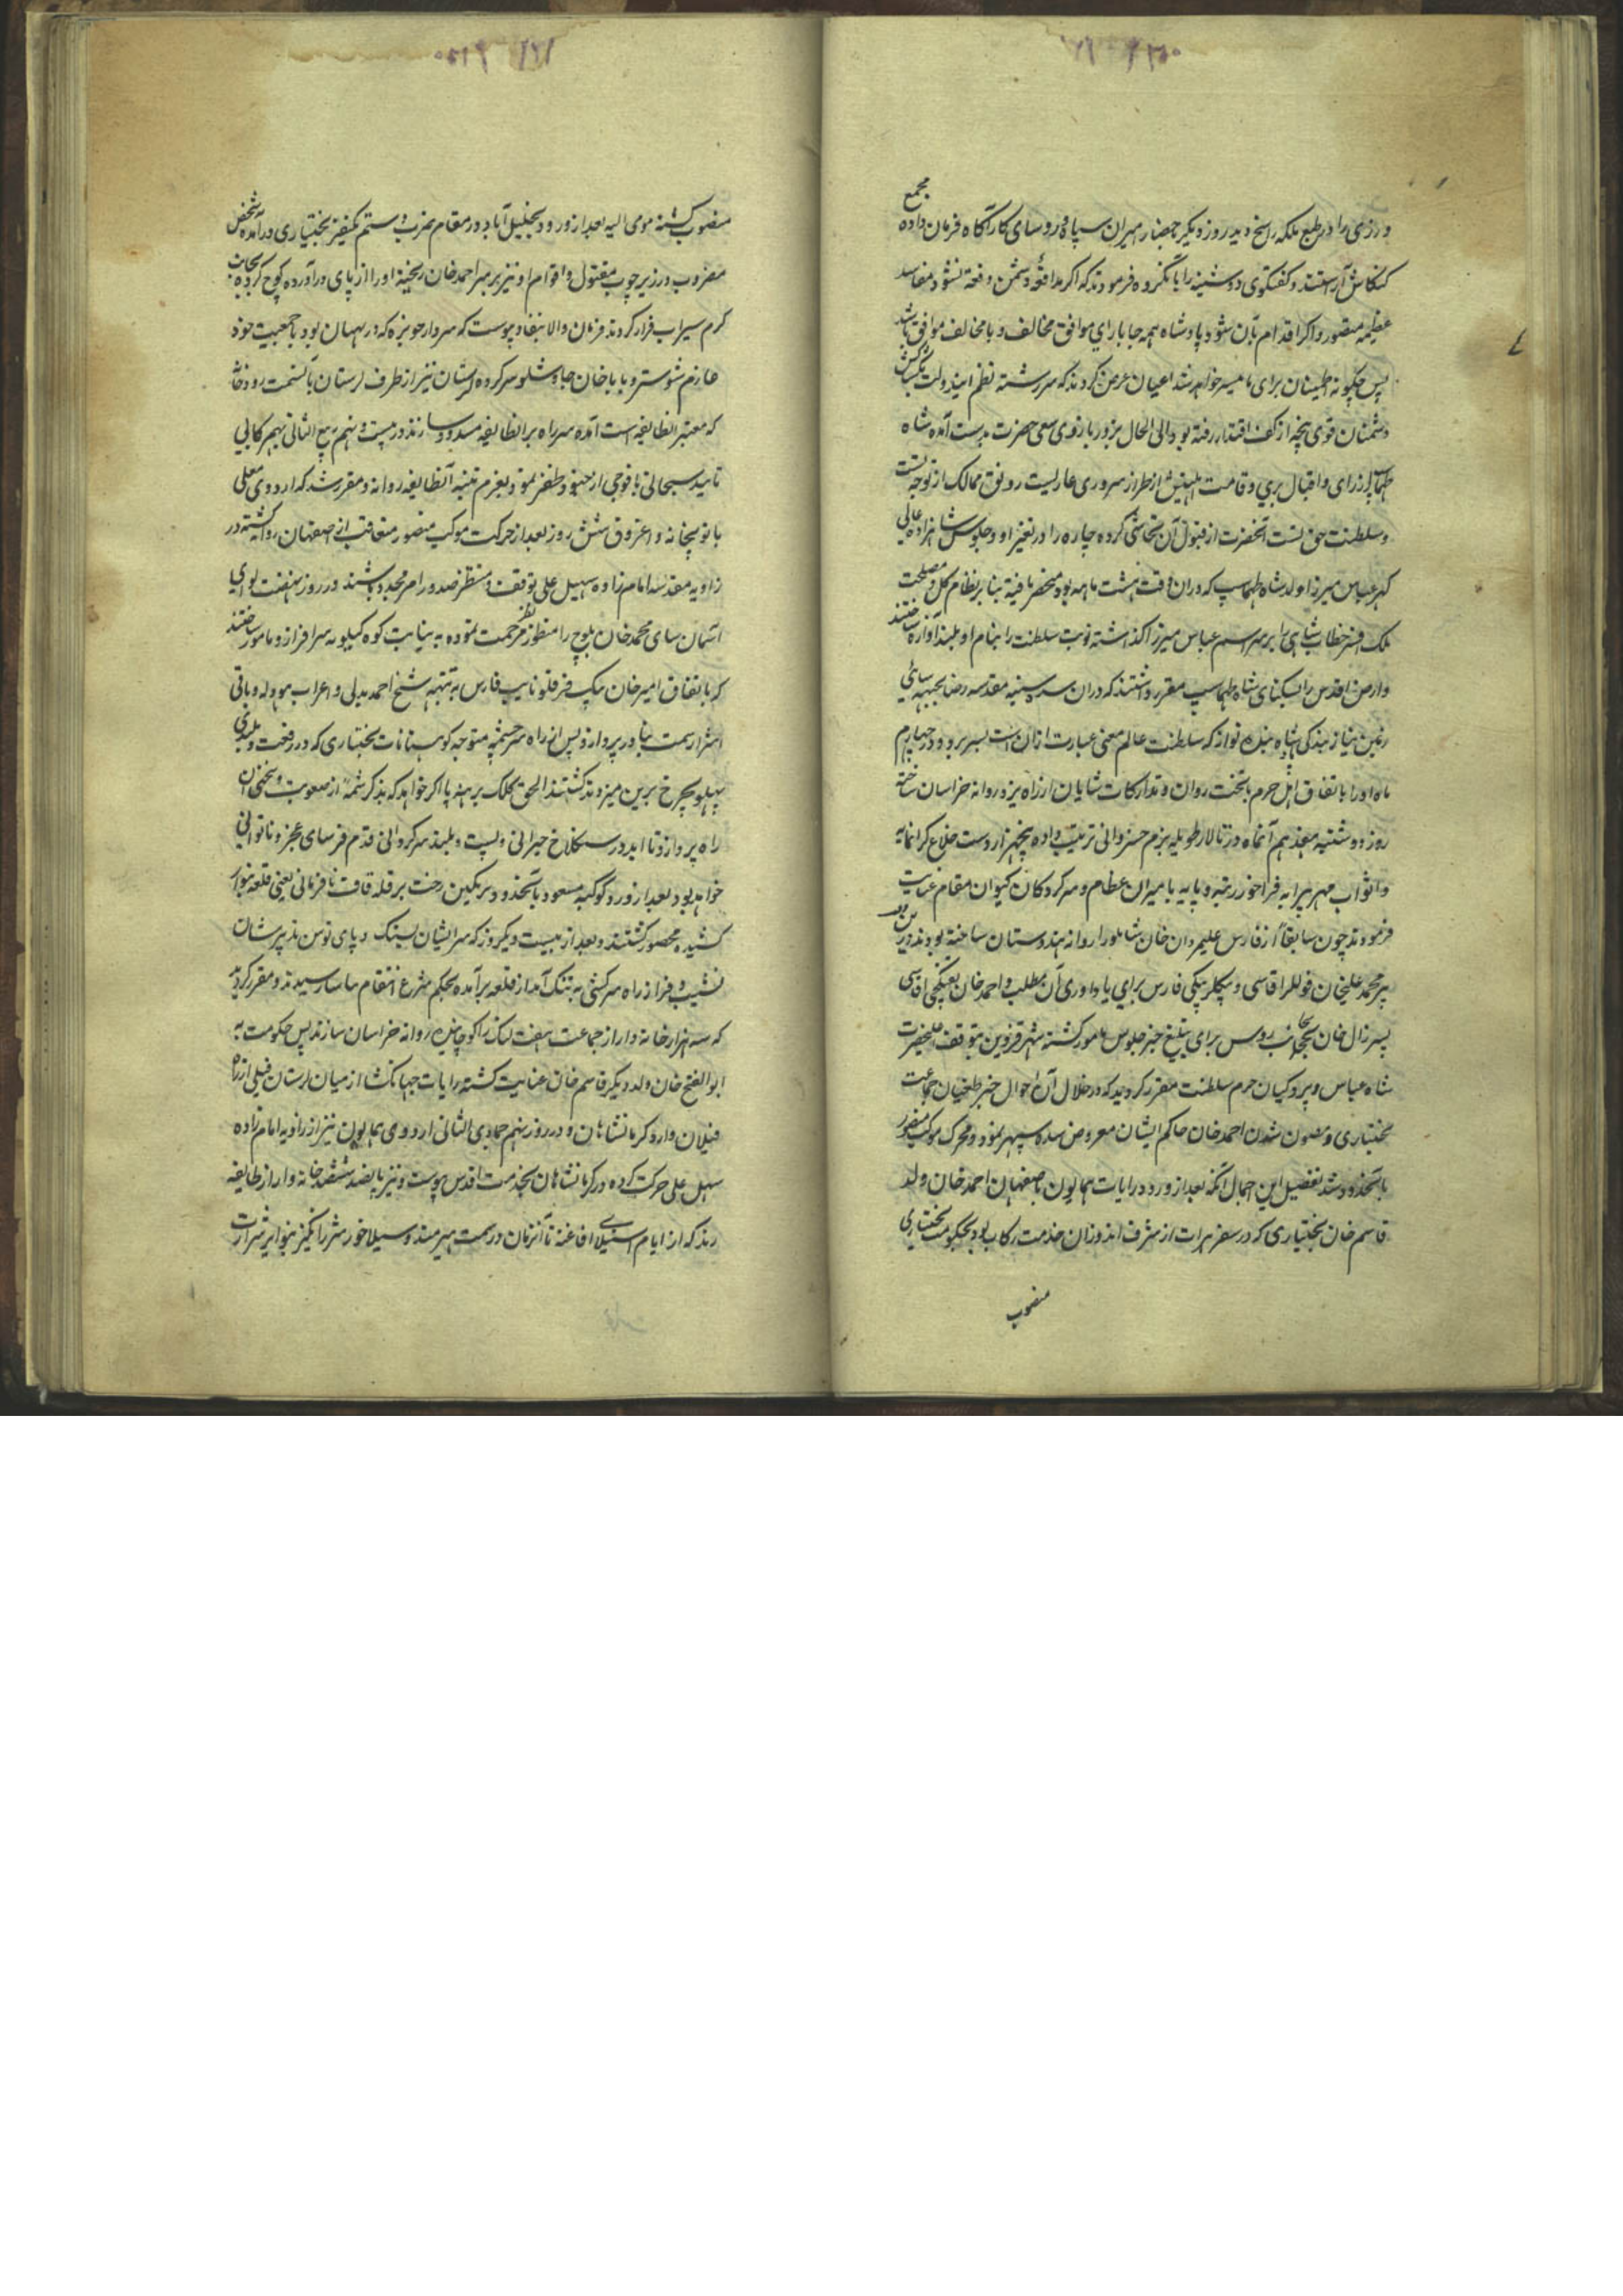 مجمع
ورزی را در طبع ملکه راسخ دید روز دیگر جمیع امیران سپاه و روسای کارآگاه فرمان داده
کنکاش آراستند و گفتگوی دوشینه را با آنگروه فرمودند که اگر مدافعهٔ دشمن دفعة نشود مفاسد
عظیمه متصور و اگر اقدام بآن شود پادشاه همه جا با رای موافق مخالف و با مخالف موافق باشد
پس چگونه اطمینان برای ما میسر خواهد شد اعیان عرض کردند که سررشته نظم ایندولت
دشمنان قوی پنجه از کف اقتدار رفته بود الی الحال بزور بازوی سعی حضرت بدست آمده شاه
طهماسب از رای و اقبال بری و قامت از طراز سروری عاریست رونق ممالک از توجه تست
و سلطنت حق تست آنحضرت از قبول آن تحاشی کرده چاره را در تغییر او و جلوس شاهزاده عالی
گهر عباس میرزا ولد شاه طهماسپ که دران وقت هشت ماهه بود منحصر یافته بنا بر نظام کل و مصلحت
ملک افسر خطاب شاهی را بر سر اسم عباس میرزا گذاشته نوبت سلطنت را بنام او بلند آوازه ساختند
و ارض اقدس را بسکنای شاه طهماسپ مقرر داشتند که دران سده سنیه مقدسه رضا بجبهه سائی
زمین نیاز بندگی شاه بنده نواز که سلطنت عالم معنی عبارت ازان است بسر برد و در چهارم
ماه او را باتفاق اهل حرم بتخت روان و تدارکات شایان از راه یزد روانه خراسان ساخته
روز دوشنبه هفدهم آنماه در تالار طویله بزم خسروانی ترتیب داده پنجهزار دست خلاع گرانمایه
و اثواب مهر پیرایه فراخور رتبه و پایه بامیران عظام و سرکردگان کیوان مقام عنایت
فرمودند چون سابقاً از فارس علیمردان خان شاملو را روانه هندوستان ساخته بودند درین
محمد علیخان قوللر آقاسی و بیگلربیگی فارس برای یادآوری آن مطلب و احمد خان تفنگچی آقاسی
پسر زال خان بجانب روس برای تبلیغ خبر جلوس مامور گشته شهر قزوین بتوقف اعلیحضرت
شاه عباس و پردگیان حرم سلطنت مقرر گردید که در خلال آن احوال خبر طغیان جماعت
بختیاری و مقتول شدن احمد خان حاکم ایشان معروض سده سپهر نمود و محرک موکب منصور
بآنحدود شد تفصیل این اجمال آنکه بعد از ورود رایات همایون باصفهان احمد خان ولد
قاسم خان بختیاری که در سفر هرات از شرف اندوزان خدمت رکاب بود بحکومت بختیاری
منصوب
منصوب گشته مومی الیه بعد از ورود بخلیل آباد در مقام ضرب و ستم یکنفر بختیاری درآمده شخص
مضروب در زیر چوب مقتول و اقوام او نیز بر سر احمد خان ریخته او را از پای درآورده کوچ کرده بجانب
کرم سیراب فرار کردند فرمان والا بنفاذ پیوست که سردار حویزه که در بهبهان بود با جمعیت خود
عازم شوشتر و باباخان چاوشلو سرکرده لرستان نیز از طرف لرستان بآنسمت رود خانه
که معبر انطایفه است آمده سر راه بر انطایفه مسدود سازند در بیست و پنجم ربیع الثانی بهمرکابی
تایید سبحانی با فوجی از جنود ظفر نمود بعزم تنبیه آنطایفه روانه و مقرر شد که اردوی معلی
با توپخانه و اغروق شش روز بعد از حرکت موکب منصور متعاقب از اصفهان روانه گشته در
زاویه مقدسه امامزاده سهیل علی توقف و منتظر صدور امر مجدد باشند و در روز نهضت لوای
آسمان سای محمد خان بلوچ را منظور نظر مرحمت نموده به نیابت کوه کیلویه سرافراز و مامور ساختند
که باتفاق امیر خان بیک قرقلو نایب فارس به تنبیه شیخ احمد مدنی و اعراب هوله و باقی
اشرار سمت بنادر پردازد پس از راه سرچشمه متوجه کوهستانات بختیاری که در رفعت و بلندی
پهلو بچرخ برین میزدند گشتند الحق کلک برهنه پا اگر خواهد که بذکر شمهٔ از صعوبت و سختی آن
راه پردازد تا ابد در سنگلاخ حیرانی و پست و بلند سرگردانی قدم فرسای عجز و ناتوانی
خواهد بود بعد از ورود کوکبه مسعود بآنحدود متمردین رخت بر قله قاف نافرمانی یعنی قلعه بنوار
کشیده محصور گشتند و بعد از بیست و یکروز که سر ایشان بسنگ و پای توسن تدبیرشان
نشیب و فراز راه سرکشی به تنگ آمد از قلعه برآمده بحکم شرع انتقام بیاسا رسیدند و مقرر گردید
که سه هزار خانه وار از جماعت هفت لنگ را کوچانیده روانه خراسان سازند پس حکومت به
ابوالفتح خان ولد دیگر قاسم خان عنایت گشته رایات جهانگشا از میان لرستان فیلی از راه
فیلان وارد کرمانشاهان و در روز پنجم جمادی الثانی اردوی همایون نیز از زاویه امامزاده
سهل علی حرکت کرده در کرمانشاهان بخدمت اقدس پیوست و نیز پانصد ششصد خانه وار از طایفه
زند که از ایام استیلای افاغنه تا آنزمان در سمت هرسین و سیلاخور شر انگیز بودند شرارت